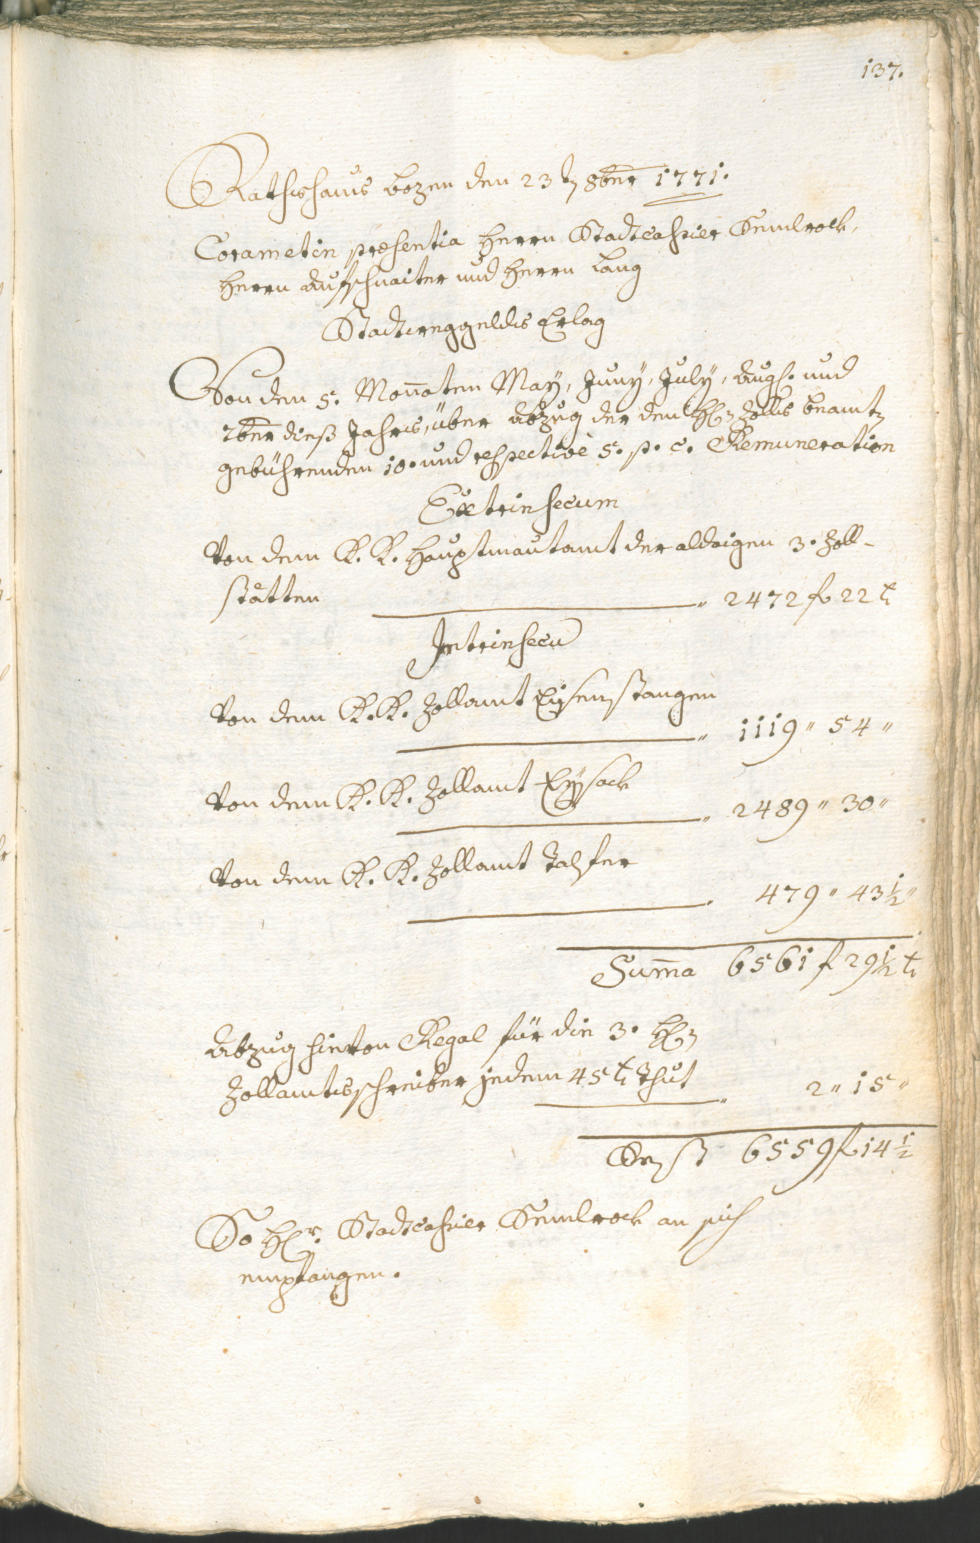 137.
Rathshaus Bozen den 23t 8ber 1771.
Coram et in præsentia Herrn Stadtcassier Semlrock,
Herrn Aufschnaiter und Herrn Lang
Stadtweggelds Erlag
Von den 5. Monaten May, Juny, July, Augs. und
7ber dieß Jahrs, über Abzug der den HH Zolls beamt
gebührenden 10. und respective 5. p. c. Remuneration
Extrinsecum
Von dem K. K. Hauptmautamt der aldaigen 3. Zoll-
stätten " 2472 f 22 x
Intrinsecu
Von dem K. K. Zollamt Eysenstangen
" 1119 " 54 "
Von dem K. K. Zollamt Eysack
" 2489 " 30 "
Von dem K. K. Zollamt Talfer
. 479 " 43½ "
Suma 6561 f 29½ x
Abzug hievon Regal für die 3. HH
Zollamtsschreiber jedem 45 x thut " 2 " 15 "
Rest 6559 f 14½
So Hr. Stadtcassier Semlrock an sich
empfangen.